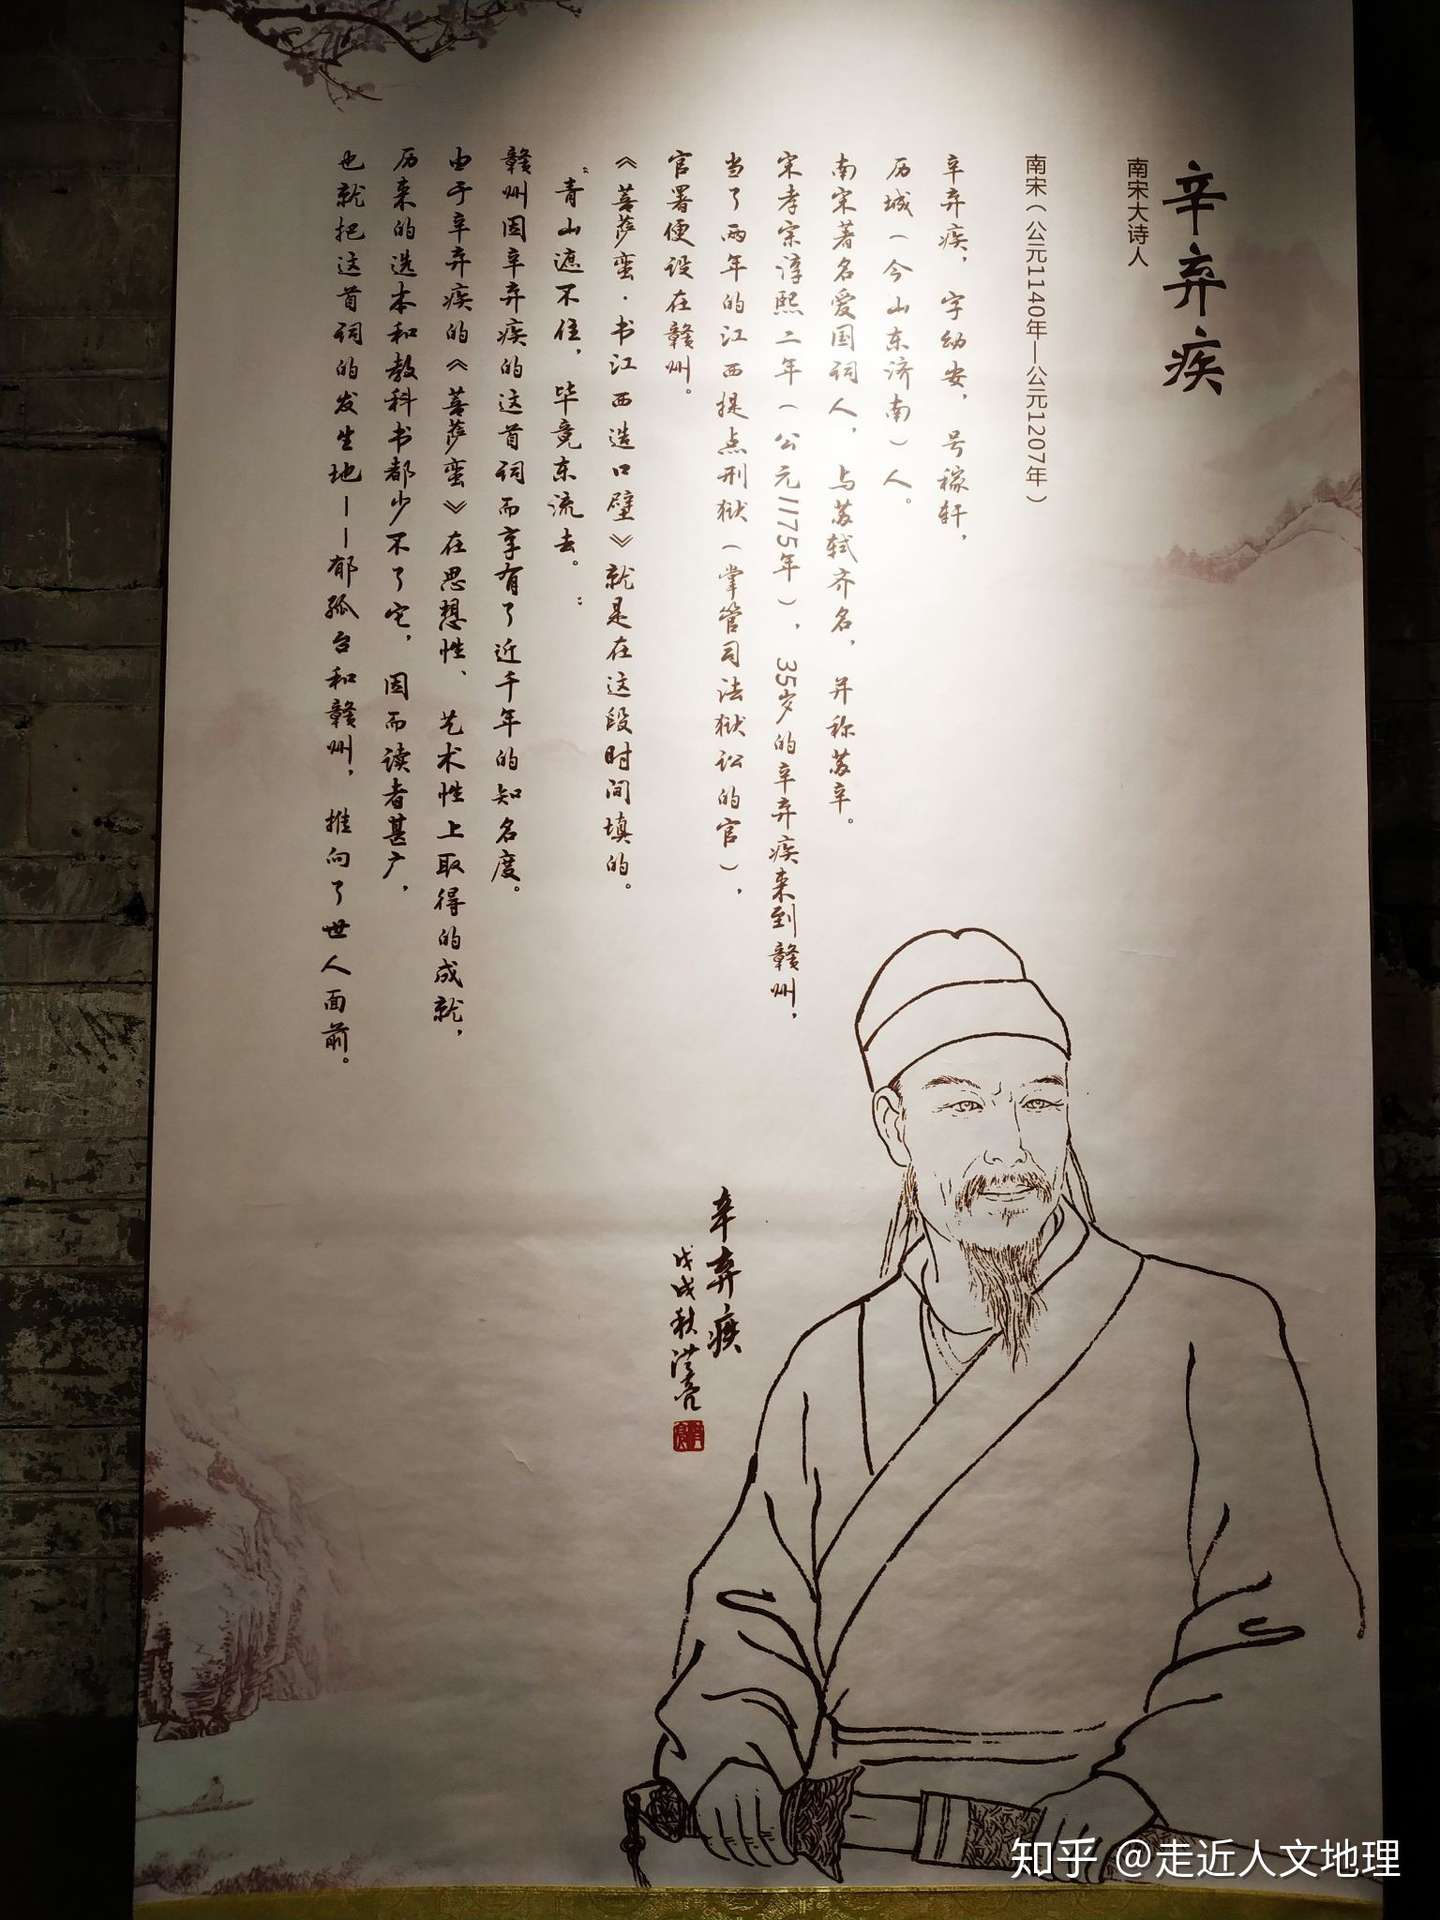 辛弃疾
南宋大诗人
南宋（公元1140年—公元1207年）
辛弃疾，字幼安，号稼轩，
历城（今山东济南）人。
南宋著名爱国词人，与苏轼齐名，并称苏辛。
宋孝宗淳熙二年（公元1175年），35岁的辛弃疾来到赣州，
当了两年的江西提点刑狱（掌管司法狱讼的官），
官署便设在赣州。
《菩萨蛮·书江西造口壁》就是在这段时间填的。
“青山遮不住，毕竟东流去。”
赣州因辛弃疾的这首词而享有了近千年的知名度。
由于辛弃疾的《菩萨蛮》在思想性、艺术性上取得的成就，
历来的选本和教科书都少不了它，因而读者甚广，
也就把这首词的发生地——郁孤台和赣州，推向了世人面前。
辛弃疾
戊戌秋洪亮
知乎 @走近人文地理